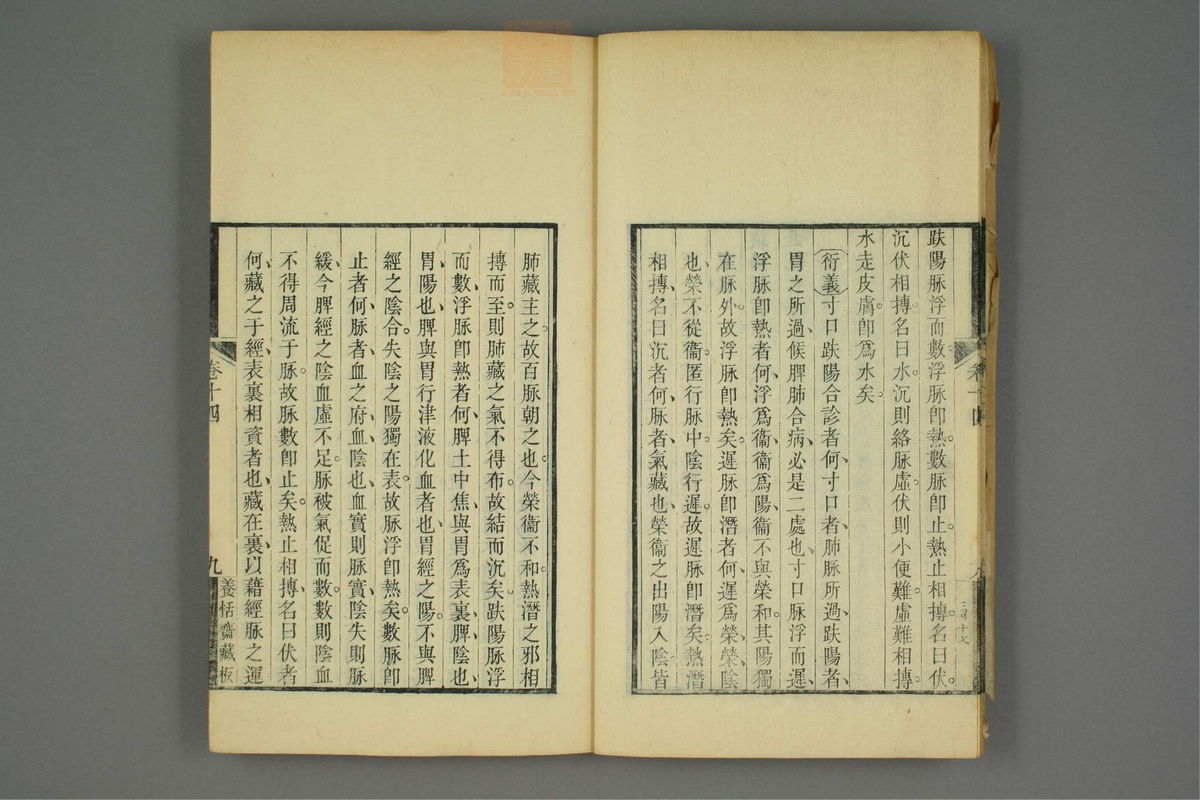 趺陽脉浮而數浮脉卽熱數脉卽止熱止相摶名曰伏
沉伏相摶名曰水沉則絡脉虛伏則小便難虛難相摶
水走皮膚卽爲水矣
衍義寸口趺陽合診者何寸口者肺脉所過趺陽者
胃之所過候脾肺合病必是二處也寸口脉浮而遲
浮脉卽熱者何浮爲衞衞爲陽衞不與榮和其陽獨
在脉外故浮脉卽熱矣遲脉卽潛者何遲爲榮榮陰
也榮不從衞匿行脉中陰行遲故遲脉卽潛矣熱潛
相摶名曰沉者何脉者氣藏也榮衞之出陽入陰皆
卷十四
肺藏主之故百脉朝之也今榮衞不和熱潛之邪相
摶而至則肺藏之氣不得布故結而沉矣趺陽脉浮
而數浮脉卽熱者何脾土中焦與胃爲表裏脾陰也
胃陽也脾與胃行津液化血者也胃經之陽不與脾
經之陰合失陰之陽獨在表故脉浮卽熱矣數脉卽
止者何脉者血之府血陰也血實則脉實陰失則脉
緩今脾經之陰血虛不足脉被氣促而數數則陰血
不得周流于脉故脉數卽止矣熱止相摶名曰伏者
何藏之于經表裏相資者也藏在裏以藉經脉之運
卷十四
九
養恬齋藏板